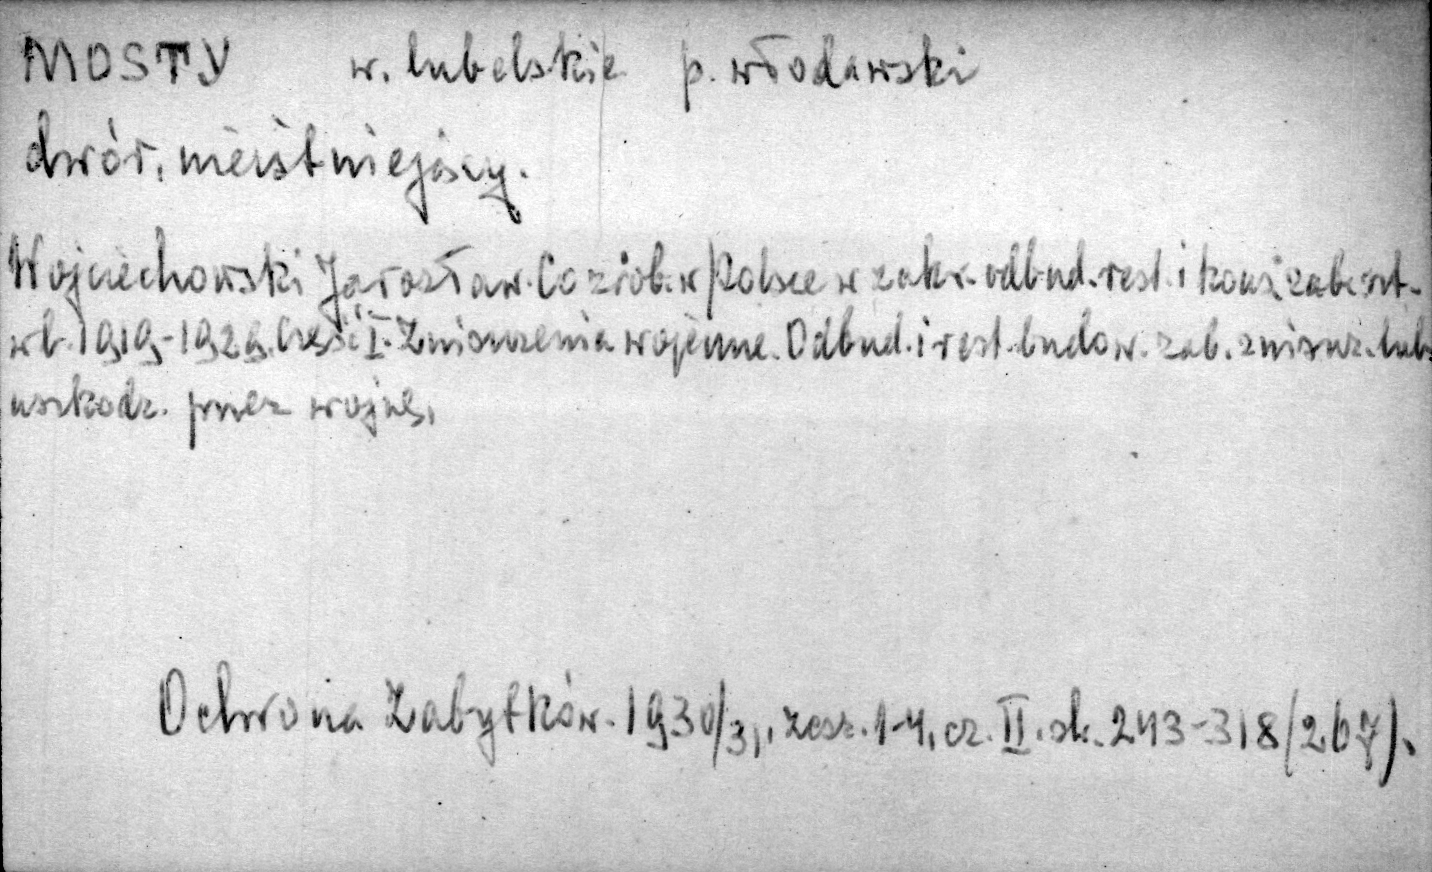 MOSTY w. lubelskie p. włodawski
dwór, nieistniejący.
Wojciechowski Jarosław. Co zrob. w Polsce w zakr. odbud. rest. i kons. zab. szt.
w l. 1919-1929. Część I. Zniszczenia wojenne. Odbud. i rest. budow. zab. zniszcz. lub
uszkodz. przez wojnę.
Ochrona Zabytków. 1930/31, zesz. 1-4, cz. II. str. 243-318/267).